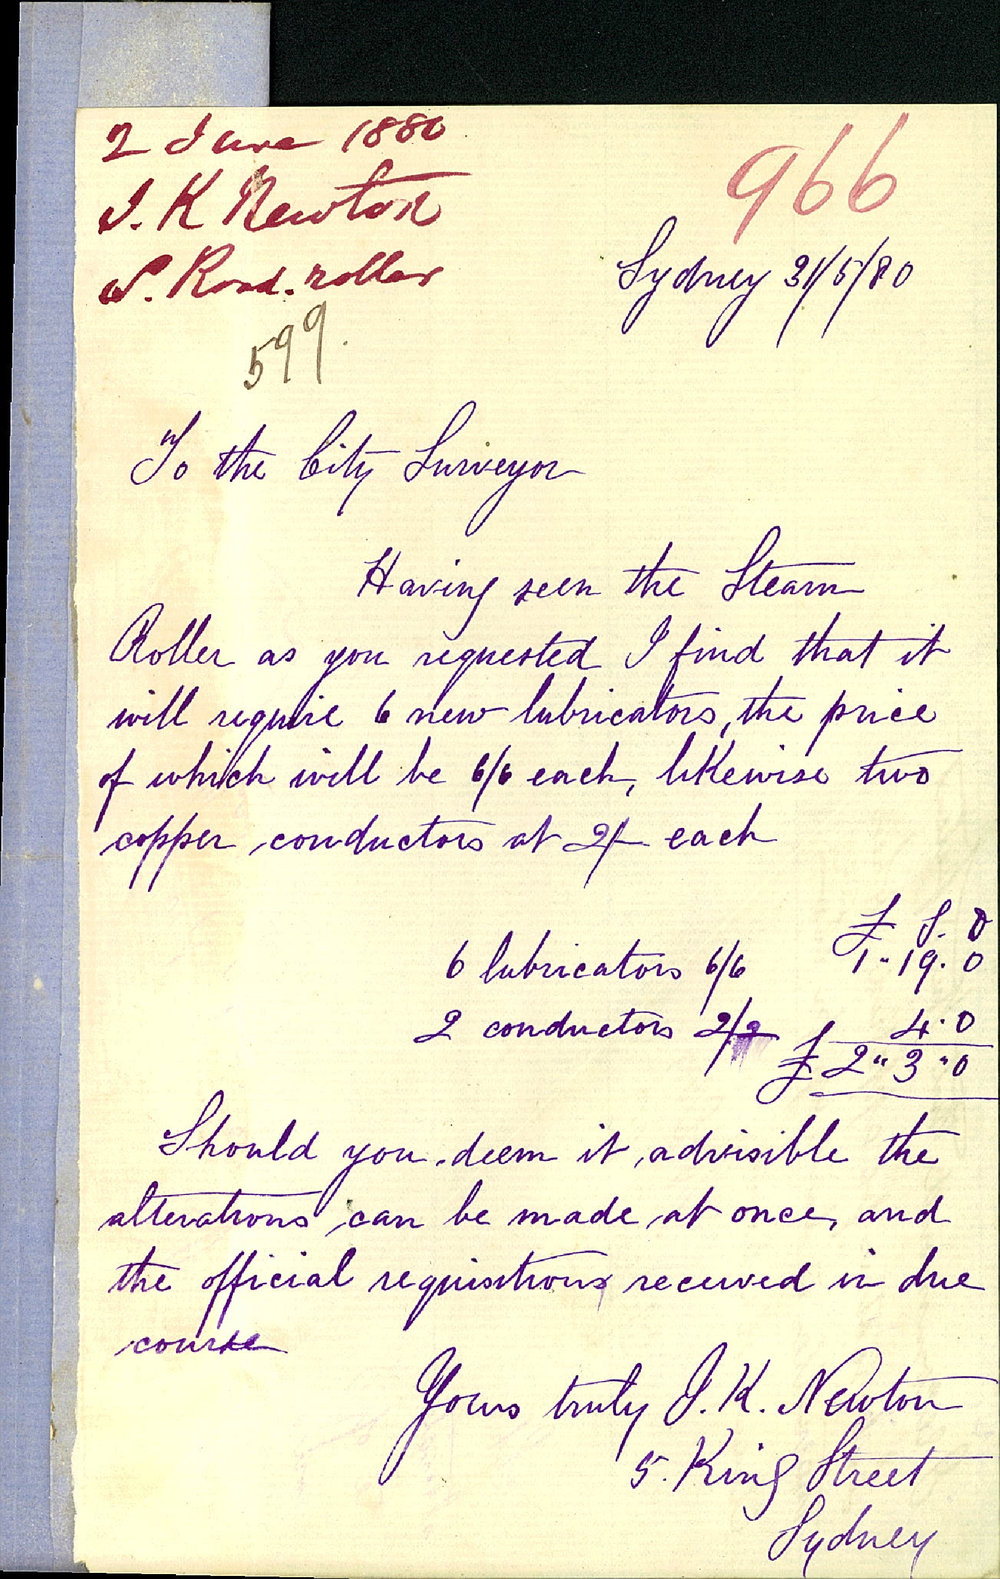 2 June 1880
J. K Newton
S. Road. roller
599.
966
Sydney 31/5/80
To the City Surveyor
Having seen the Steam
Roller as you requested I find that it
will require 6 new lubricators, the price
of which will be 6/6 each, likewise two
copper conductors at 2/- each
£ S. D
6 lubricators 6/6 1"19.0
2 conductors 2/- 4.0
£2"3"0
Should you deem it advisible the
alterations can be made at once, and
the official requisitions received in due
course
Yours truly J. K. Newton
5. King Street
Sydney